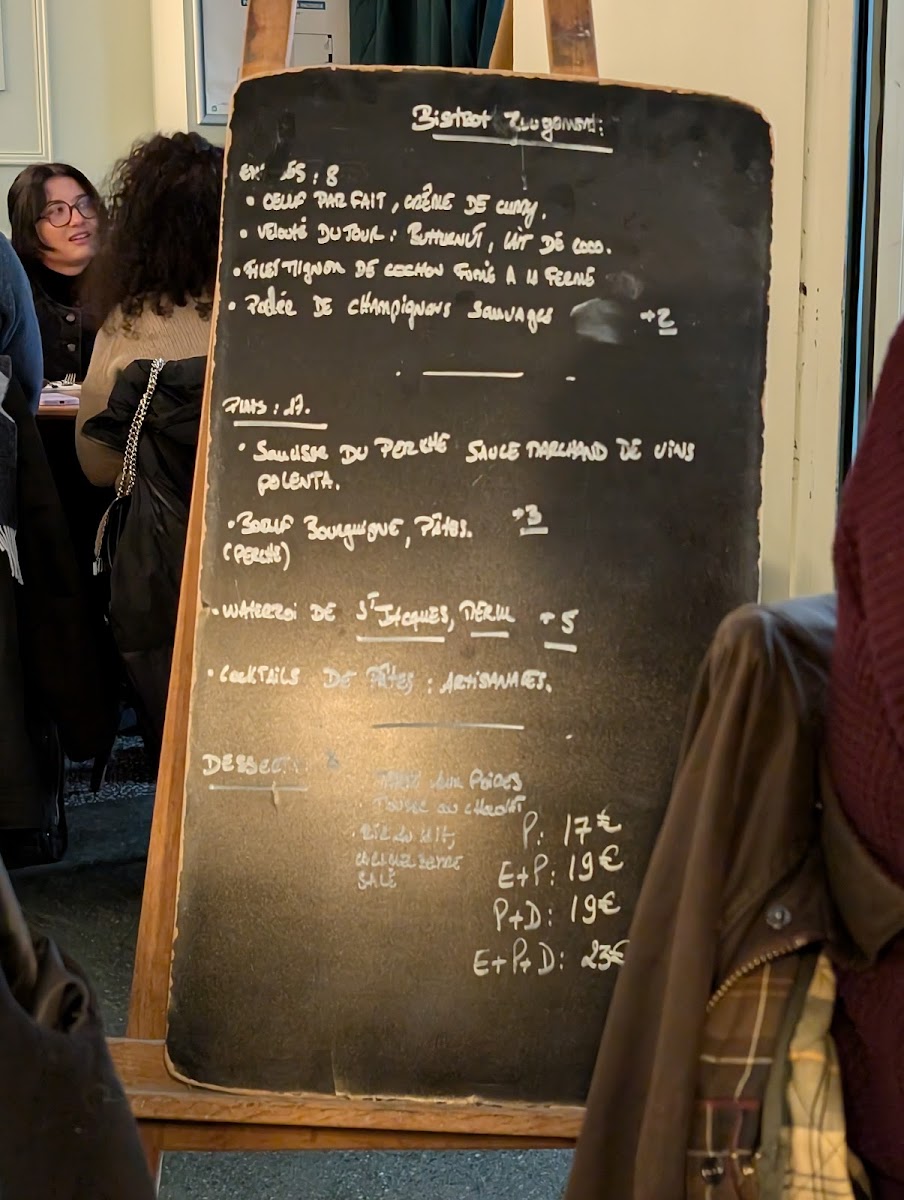 Bistrot
: 8
• OEUF PARFAIT, CRÊME DE CURRY.
• VELOUTÉ DU JOUR : BUTTERNUT, LAIT DE COCO.
• FILET MIGNON DE COCHON FUMÉ A LA FERME
• POÊLÉE DE CHAMPIGNONS SAUVAGES +2
PLATS : 17.
• SAUCISSE DU PERCHE SAUCE MARCHAND DE VINS
POLENTA.
• BOEUF BOURGUIGNE, PÂTES. +3
(PERCHE)
• WATERZOI DE ST JACQUES, +5
• COCKTAILS DE PÂTES : ARTISANALES.
DESSERT
POIRES
AU CHOCOLAT
RIZ AU LAIT,
CARAMEL BEURRE
SALÉ
P: 17€
E+P: 19€
P+D: 19€
E+P+D: 23€